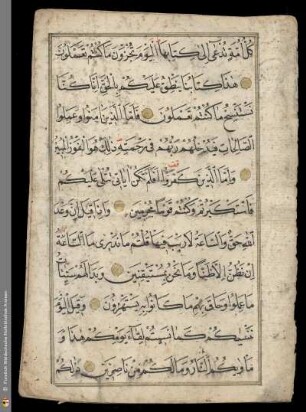 كل أمة تدعى إلى كتابها اليوم تجزون ما كنتم تعملون
هذا كتابنا ينطق عليكم بالحق إنا كنا
نستنسخ ما كنتم تعملون فأما الذين آمنوا وعملوا
الصالحات فيدخلهم ربهم في رحمته ذلك هو الفوز المبين
وأما الذين كفروا أفلم تكن آياتي تتلى عليكم
فاستكبرتم وكنتم قوما مجرمين وإذا قيل إن وعد
الله حق والساعة لا ريب فيها قلتم ما ندري ما الساعة
إن نظن إلا ظنا وما نحن بمستيقنين وبدا لهم سيئات
ما عملوا وحاق بهم ما كانوا به يستهزؤن وقيل اليوم
ننسيكم كما نسيتم لقاء يومكم هذا و
مأويكم النار وما لكم من ناصرين ذلكم